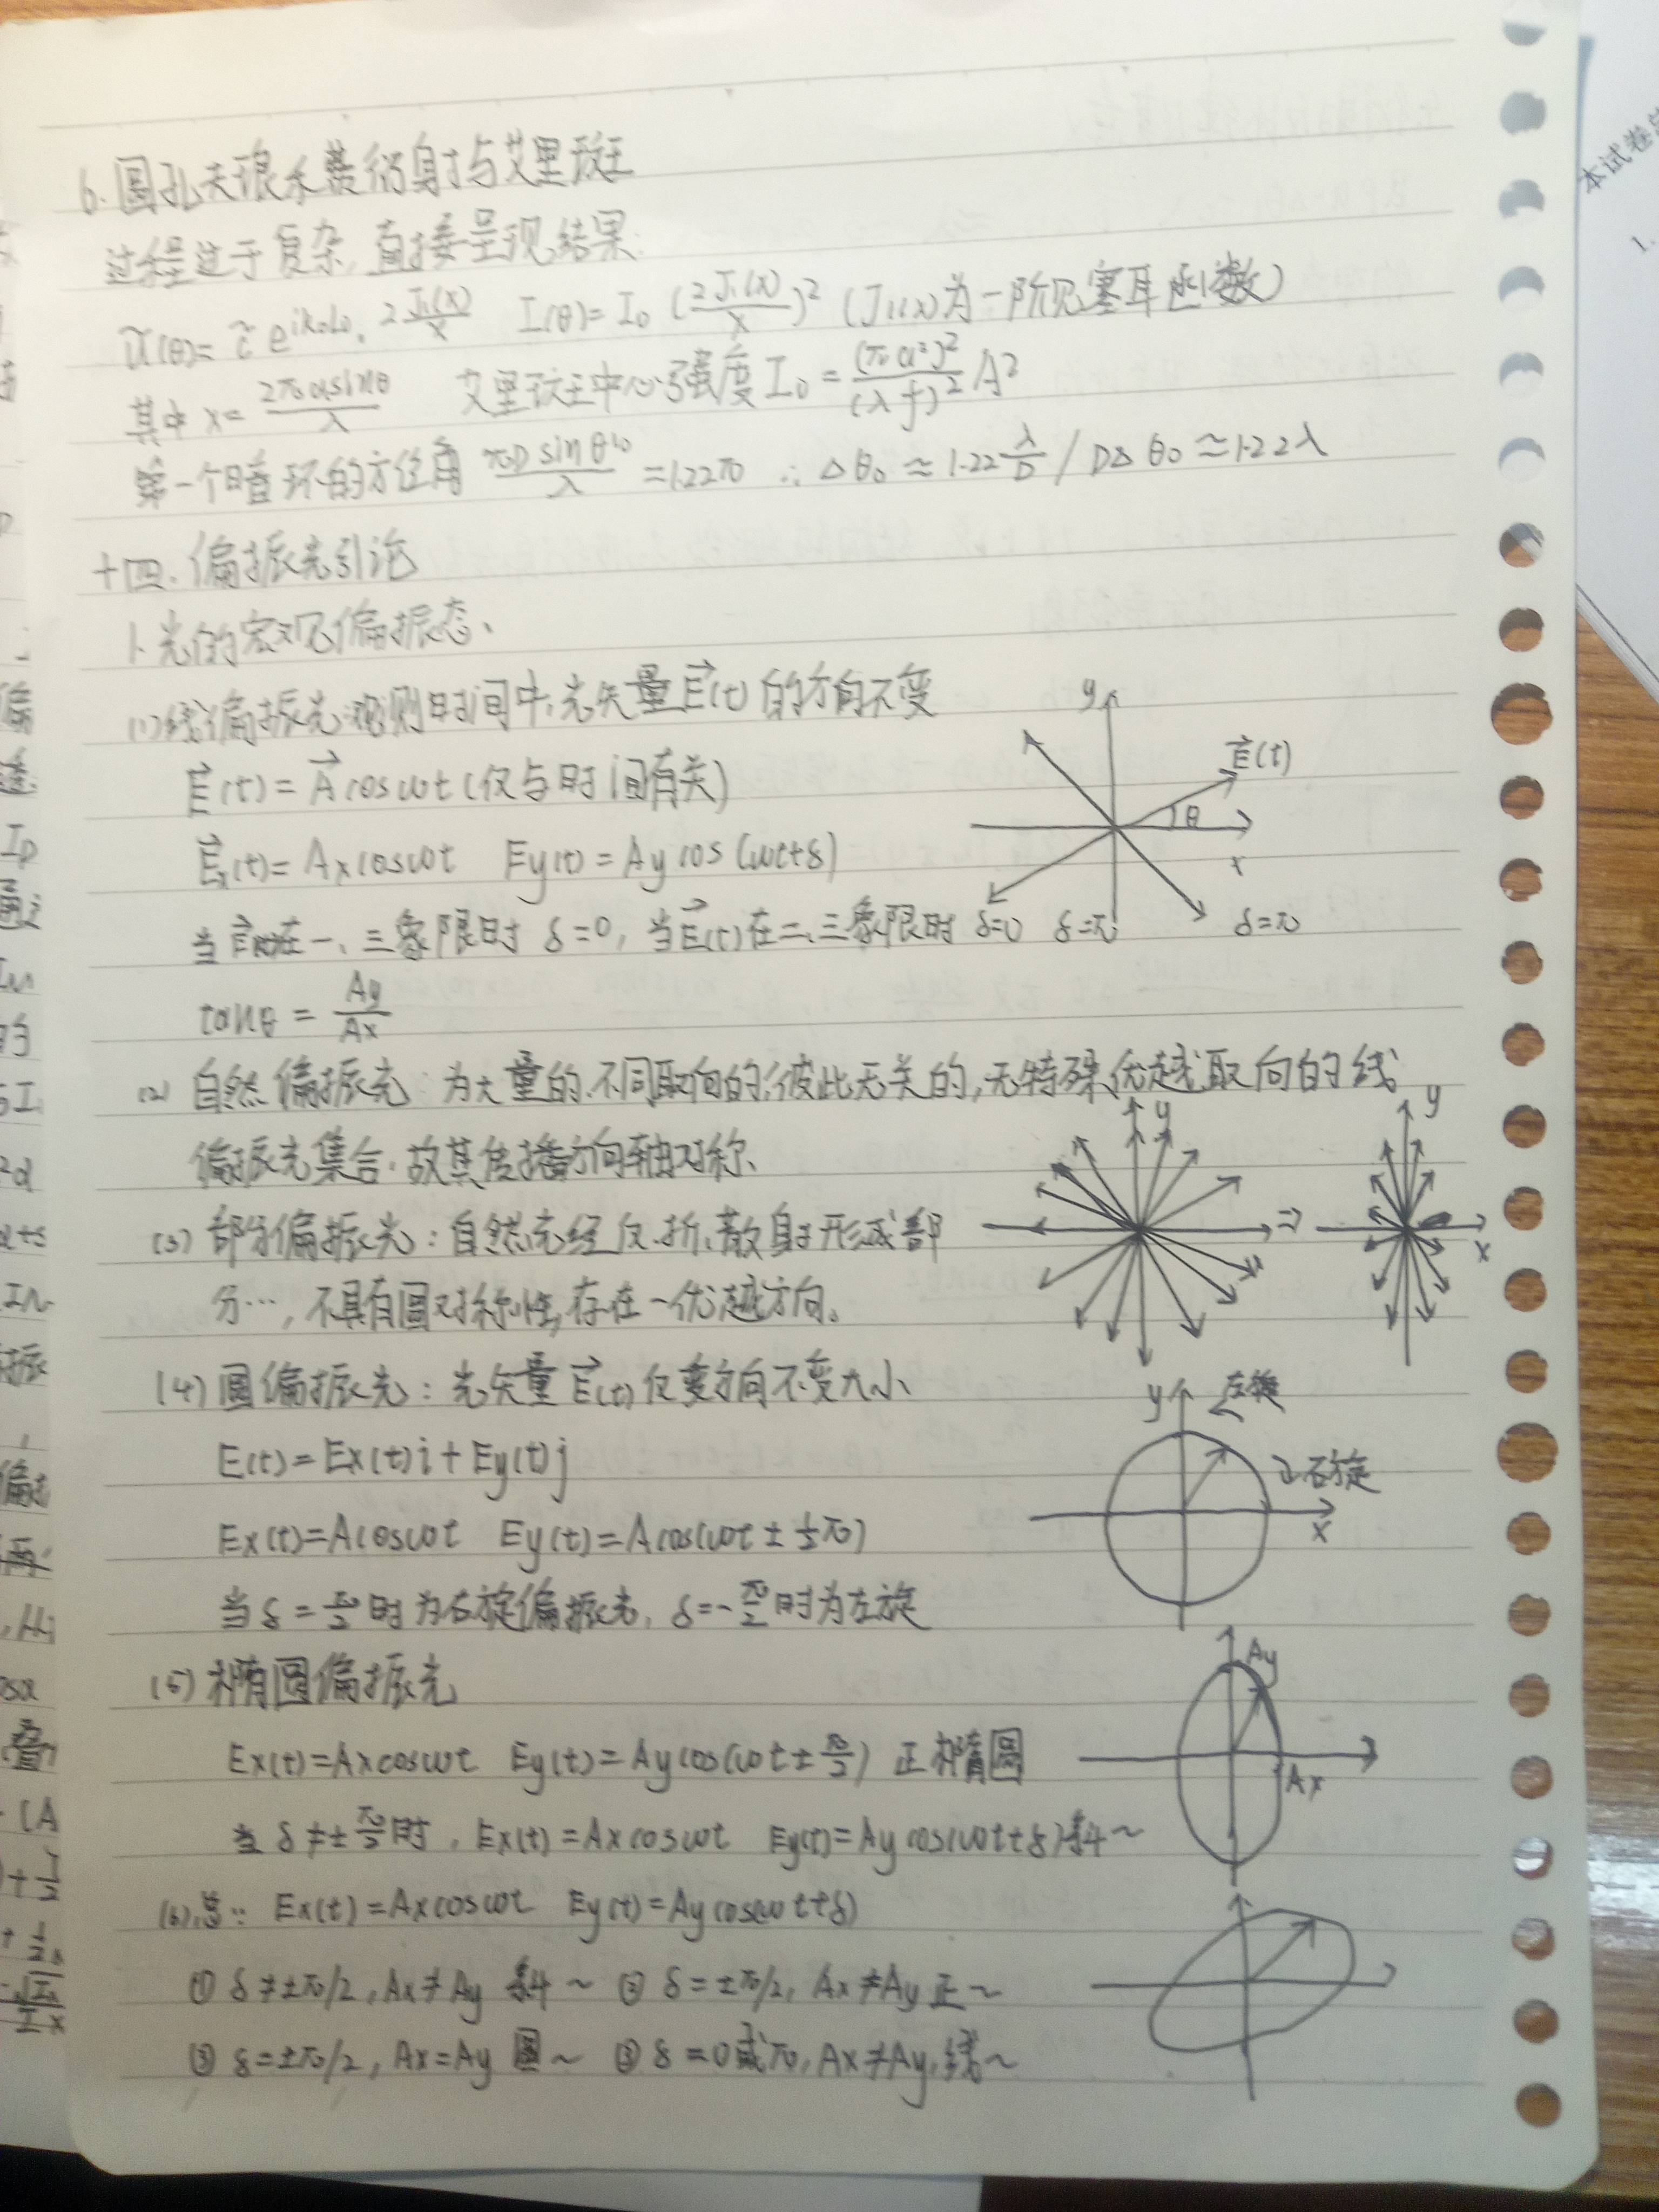 6. 圆孔夫琅禾费衍射与艾里斑
过程过于复杂, 直接呈现结果:
Ũ(θ)= c̃ e^{ik₀L₀}· 2J₁(x)/x   I(θ)= I₀ (2J₁(x)/x)² (J₁(x)为一阶贝塞耳函数)
其中 x= 2πasinθ/λ   艾里斑中心强度 I₀ = (πa²)²/(λf)² A²
第一个暗环的方位角 πD sinθ₁₀/λ =1.22π ∴ Δθ₀ ≈ 1.22 λ/D / DΔθ₀ ≈ 1.22λ
十四. 偏振光引论
1. 光的宏观偏振态、
(1) 线偏振光:观测时间中,光矢量E⃗(t) 的方向不变
E⃗(t) = A⃗ cosωt (仅与时间有关)
E⃗x(t)= Ax cosωt   Ey(t) = Ay cos(ωt+δ)
当E⃗(t)在一、三象限时 δ=0, 当E⃗(t)在二、三象限时 δ=π
tanθ = Ay/Ax
y
E⃗(t)
θ
x
δ=0
δ=π
(2) 自然偏振光 为大量的、不同取向的、彼此无关的,无特殊优越取向的线
偏振光集合.故其传播方向轴对称、
(3) 部分偏振光: 自然光经反、折、散射形成部
分…, 不具有圆对称性,存在一优越方向。
y
⇒
y
x
(4) 圆偏振光: 光矢量E⃗(t) 仅变方向不变大小
E(t)= Ex(t)i + Ey(t)j
Ex(t)=Acosωt   Ey(t)=Acos(ωt ± ½π)
当 δ = π/2 时为右旋偏振光, δ=-π/2 时为左旋
y
左旋
右旋
x
(5) 椭圆偏振光
Ex(t)=Axcosωt   Ey(t)= Ay cos(ωt ± π/2) 正椭圆
当 δ ≠ ± π/2 时, Ex(t) = Ax cosωt   Ey(t)= Ay cos(ωt+δ) 斜~
Ay
Ax
(6) 总: Ex(t) =Axcosωt   Ey(t) =Aycos(ωt+δ)
① δ≠±π/2, Ax≠Ay 斜~ ② δ=±π/2, Ax≠Ay 正~
③ δ=±π/2, Ax=Ay 圆~ ③ δ=0或π, Ax≠Ay, 线~
本试卷
1.